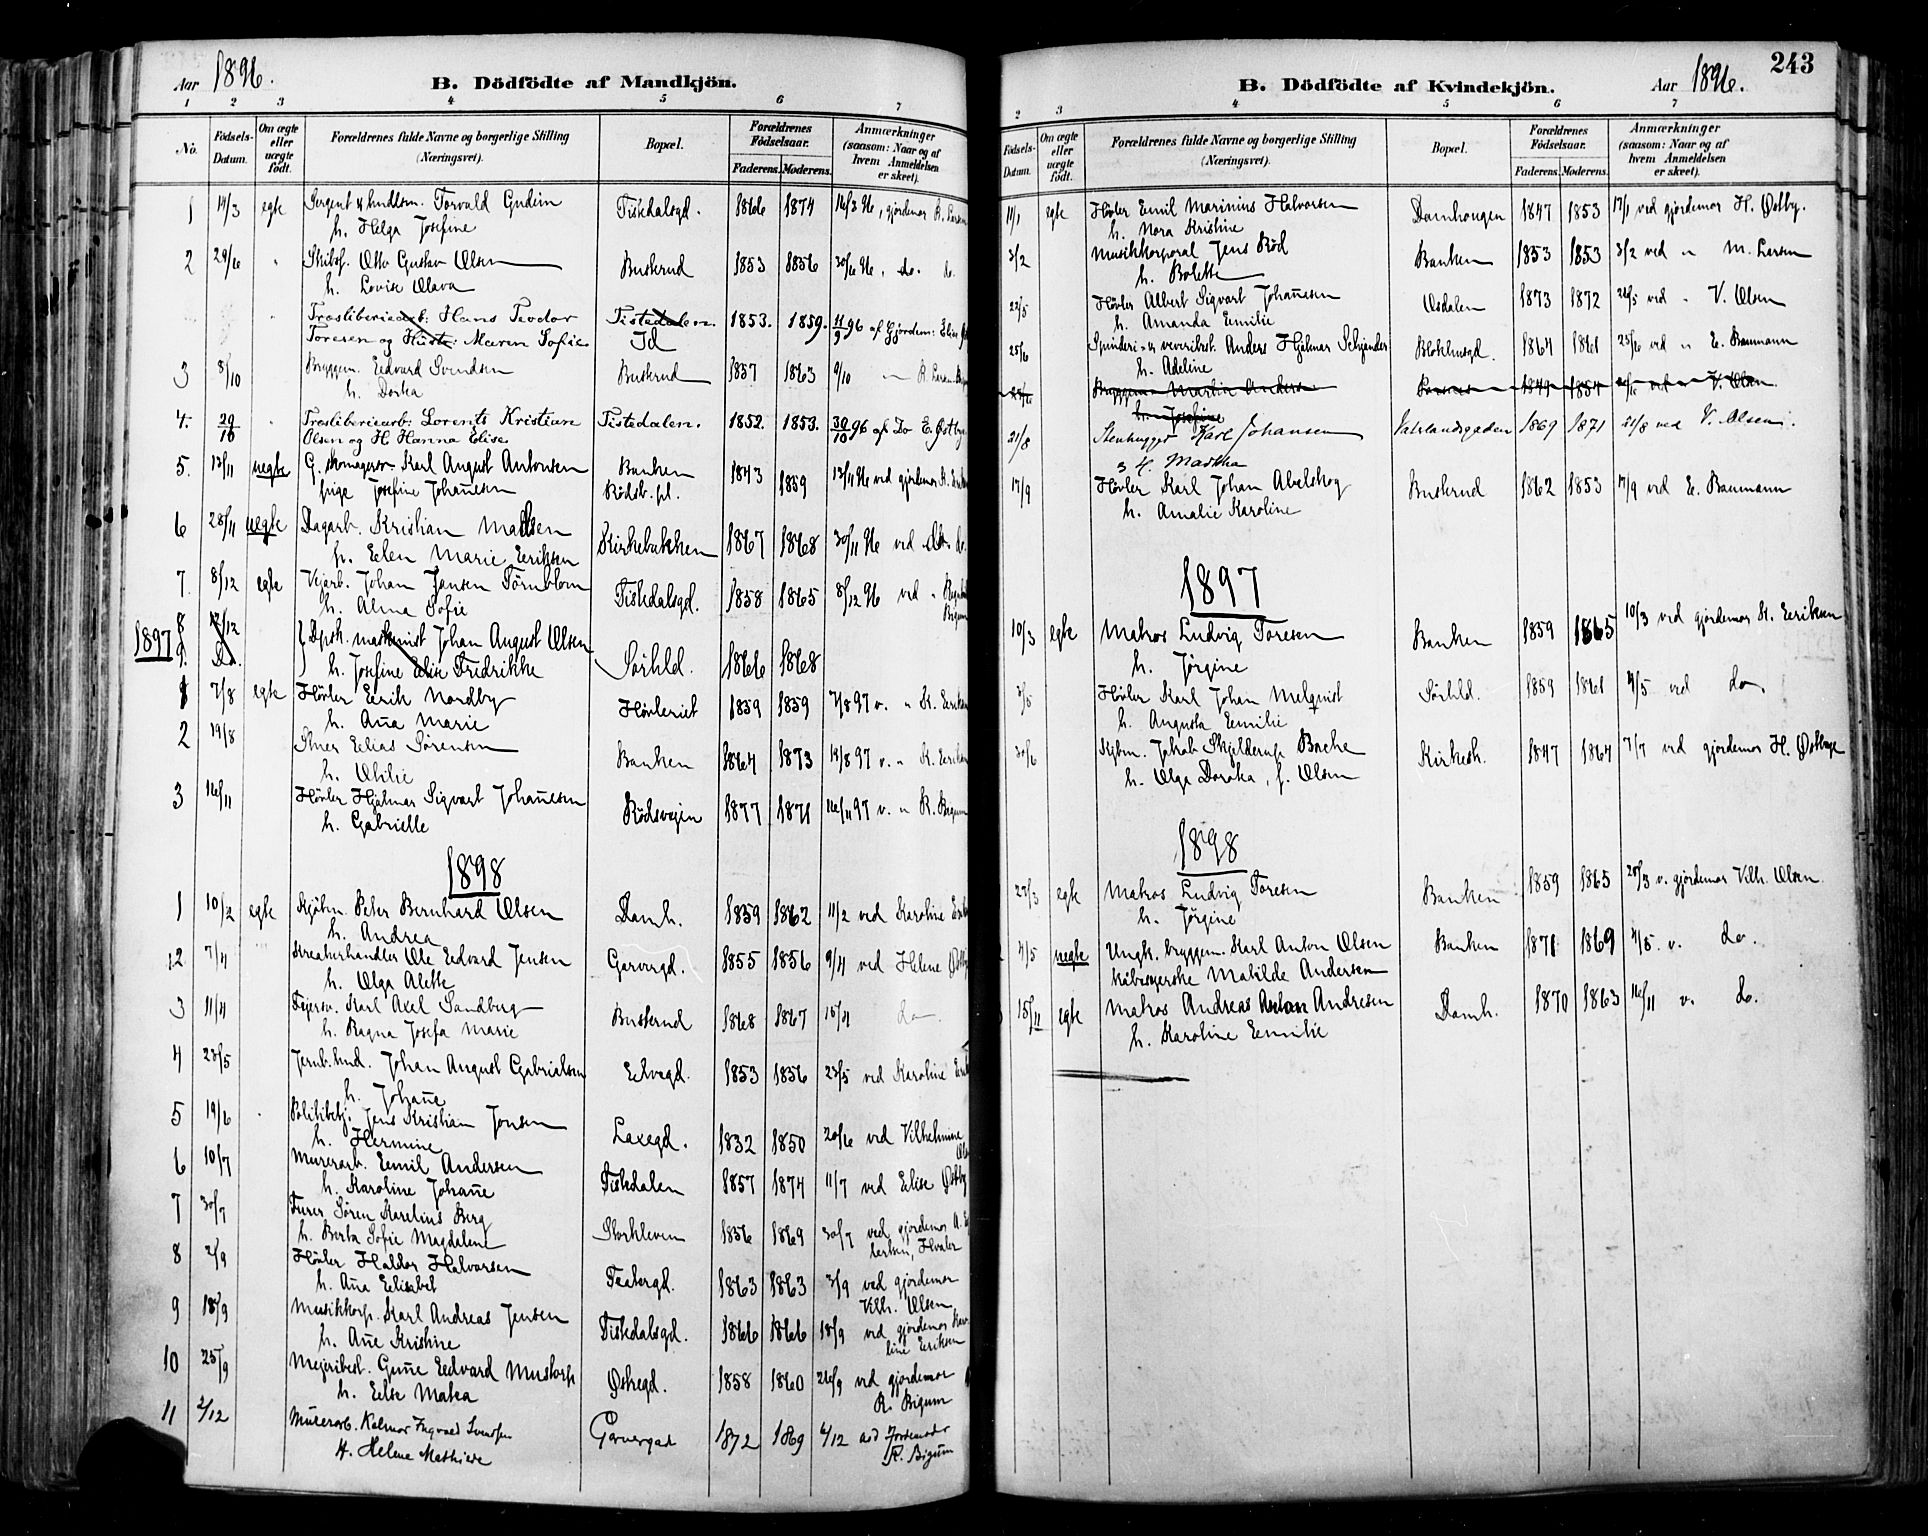 Aar 1896. B. Dödfödte af Mandkjön.
1 2 3 4 5 6 7
No. Födsels-Datum. Om ægte eller uægte födt. Forældrenes fulde Navne og borgerlige Stilling (Næringsvei). Bopæl. Forældrenes Födselsaar. Faderens. Moderens. Anmærkninger (saasom: Naar og af hvem Anmeldelsen er skeet).
1 14/3 egte Sergent & hndlsm. Torvald Gudim Tistedalsgd. 1866 1874 16/3 96, gjordemor R. Larsen
h. Helga Josefine
2 29/6 " Skibsf. Otto Gustav Olsen Buskrud 1853 1856 30/6 96, do. do.
h. Lovise Olava
Træsliberiearb: Hans Teodor Tistedalen. 1853. 1859. 11/9 96 af Gjordem: Elise
Toresen og Hustr: Maren Sofie Id
3 8/10 Bryggem. Edvard Svendsen Buskrud 1857 1863 9/10 " R. Larsen
h. Dorka
4. 29/10 " Træsliberiearb: Lorents Kristian Tistedalen. 1852. 1853. 30/10 96 af Do E. Østby
Olsen og H. Hanna Elise
5. 13/11 uegte G. skomagersv. Karl August Antonsen Banken 1843 1859 13/11 96 ved gjordemor K. Eriksen
pige Josefine Johansen Rödsb. pl.
6 28/11 uegte Dagarb. Kristian Madsen Kirkebakken 1867 1868 30/11 96 ved do. do.
p. Elen Marie Eriksen
7. 8/12 egte Vejarb. Johan Jansen Törnblom Tistedalsgd. 1858 1865 8/12 96 ved " Bigum
h. Alma Sofie
8 12/12 Dpsk. maskinist Johan August Olsen Sörhld. 1866 1868
1897 9. do. h. Josefine Elise Fredrikke
1 7/8 egte Hövler Erik Nordby Hövleriet 1859 1859 7/8 97 v. " K. Eriksen
h. Anna Marie
2 19/8 Smer Elias Sörensen Banken 1864 1873 19/8 97 v. " K. Eriksen
h. Otilie
3 16/11 Hövler Hjalmar Sigvart Johannesen Rödsvejen 1877 1871 16/11 97 v. " R. Bigum
h. Gabrielle
1898
1 10/2 egte Kjöbm. Peter Bernhard Olsen Damh. 1859 1862 11/2 ved Karoline
h. Andrea
2 7/4 Kreaturhandler Ole Edvard Jensen Garvergd. 1855 1856 9/4 ved Helene Østby
h. Olga Alette
3 11/4 Karl Axel Sandberg Buskrud 1868 1867 15/4 do.
h. Ragna Josefa Marie
4 23/5 Jernb.bud. Johan August Gabrielsen Elvegd. 1853 1856 23/5 ved Karoline
h. Johanne
5 19/6 Politibetj. Jens Kristian Jonsen Laxegd. 1832 1850 20/6 ved Vilhelmine
h. Hermine
6 10/7 Murerarb. Emil Andersen Tistedalen 1857 1874 11/7 ved Elise Østby
h. Karoline Johanne
7 30/7 Furer Sören Karelius Berg Storkleven 1856 1869 30/7 ved gjordemor
h. Berta Sofie Magdalene Hvaler
8 2/9 Hövler Haldor Halvorsen Teatergd. 1863 1863 3/9 ved gjordemor
h. Anna Elisabet Vilh. Olsen
9 18/9 Musikkorp. Karl Andreas Jensen Tistedalsgd. 1866 1866 18/9 ved gjordemor Karo-
h. Anne Kristine line Eriksen
10 25/9 Mejeribest. Gunne Edvard Mustorp Østregd. 1858 1860 26/9 ved gjordemor
h. Else Matea R. Bigum
11 2/12 Murerarb. Kalmor Ingvald Svendsen Garvergad 1872 1869 6/12 ved Jordemoder
H. Helene Mathilde R. Bigum
243
B. Dödfödte af Kvindekjön. Aar 1896.
2 3 4 5 6 7
Födsels-Datum. Om ægte eller uægte födt. Forældrenes fulde Navne og borgerlige Stilling (Næringsvei). Bopæl. Forældrenes Födselsaar. Faderens. Moderens. Anmærkninger (saasom: Naar og af hvem Anmeldelsen er skeet).
11/1 egte Hövler Emil Marinius Halvorsen Damhaugen 1847 1853 17/1 ved gjordemor H. Østby.
h. Nora Kristine
3/2 Musikkorporal Jens Röd Banken 1853 1853 3/2 ved " M. Larsen
h. Bolette
22/5 Hövler Albert Sigvart Johannesen Osdalen 1873 1872 26/5 ved " V. Olsen
h. Amanda Emilie
25/6 Spinderi- & veveribst. Anders Hjalmar Schjander Blokhusgd. 1864 1861 25/6 ved " E. Baumann
h. Adeline
Bryggem. Martin Anders 1849 1854 ved " V. Olsen.
h. Josefine
21/8 Stenhugger Karl Johansen Vaterlandsgaden 1869 1871 21/8 ved V. Olsen.
H. Martha
17/9 Hövler Karl Johan Abelskog Buskrud 1862 1853 17/9 ved E. Baumann
h. Amalie Karoline
1897
10/3 egte Matros Ludvig Toresen Banken 1859 1865 10/3 ved gjordemor K. Eriksen
h. Jörgine
3/5 Hövler Karl Johan Melqvist Sörhld. 1859 1861 4/5 ved do.
h. Augusta Emilie
30/6 Kjbm. Jakob Skjelderup Bache Kirkesh. 1847 1864 7/7 ved gjordemor H. Østbye
h. Olga Dorotea, f. Olsen
1898
23/3 egte Matros Ludvig Toresen Banken 1859 1865 28/3 v. gjordemor Vilh. Olsen.
h. Jörgine
4/5 uegte Ungk. bryggem. Karl Anton Olsen Banken 1871 1869 4/5. v. do.
Kåbesyerske Matilde Andersen
15/11 egte Matros Andreas Anton Andresen Damh. 1870 1863 16/11 v. do.
h. Karoline Emilie